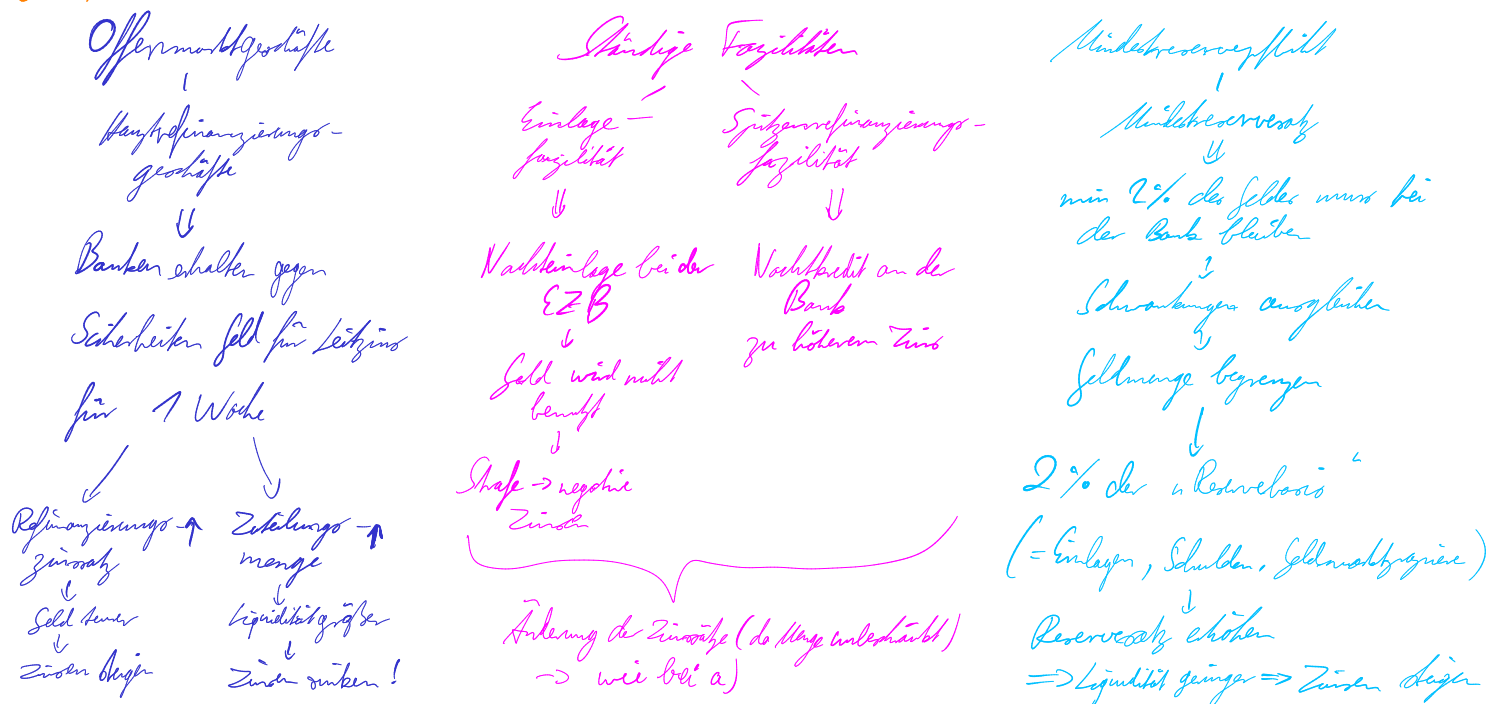 Offenmarktgeschäfte
Hauptrefinanzierungs-
geschäfte
Banken erhalten gegen
Sicherheiten Geld für Leitzins
für 1 Woche
Refinanzierungs-
zinssatz
Geld teurer
Zinsen steigen
Zuteilungs-
menge
Liquidität größer
Zinsen sinken!
Ständige Fazilitäten
Einlage-
fazilität
Nachteinlage bei der
EZB
Geld wird nicht
benutzt
Strafe -> negative
Zinsen
Spitzenrefinanzierungs-
fazilität
Nachtkredit an der
Bank
zu höherem Zins
Änderung der Zinssätze (da Menge unbeschränkt)
-> wie bei a)
Mindestreservepflicht
Mindestreservesatz
min 2% der Gelder muss bei
der Bank bleiben
Schwankungen ausgleichen
Geldmenge begrenzen
2% der "Reservebasis"
(= Einlagen, Schulden, Geldmarktpapiere)
Reservesatz erhöhen
=> Liquidität geringer => Zinsen steigen